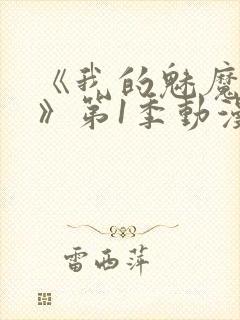 《我的魅魔
》第1季動漫
雷西萍